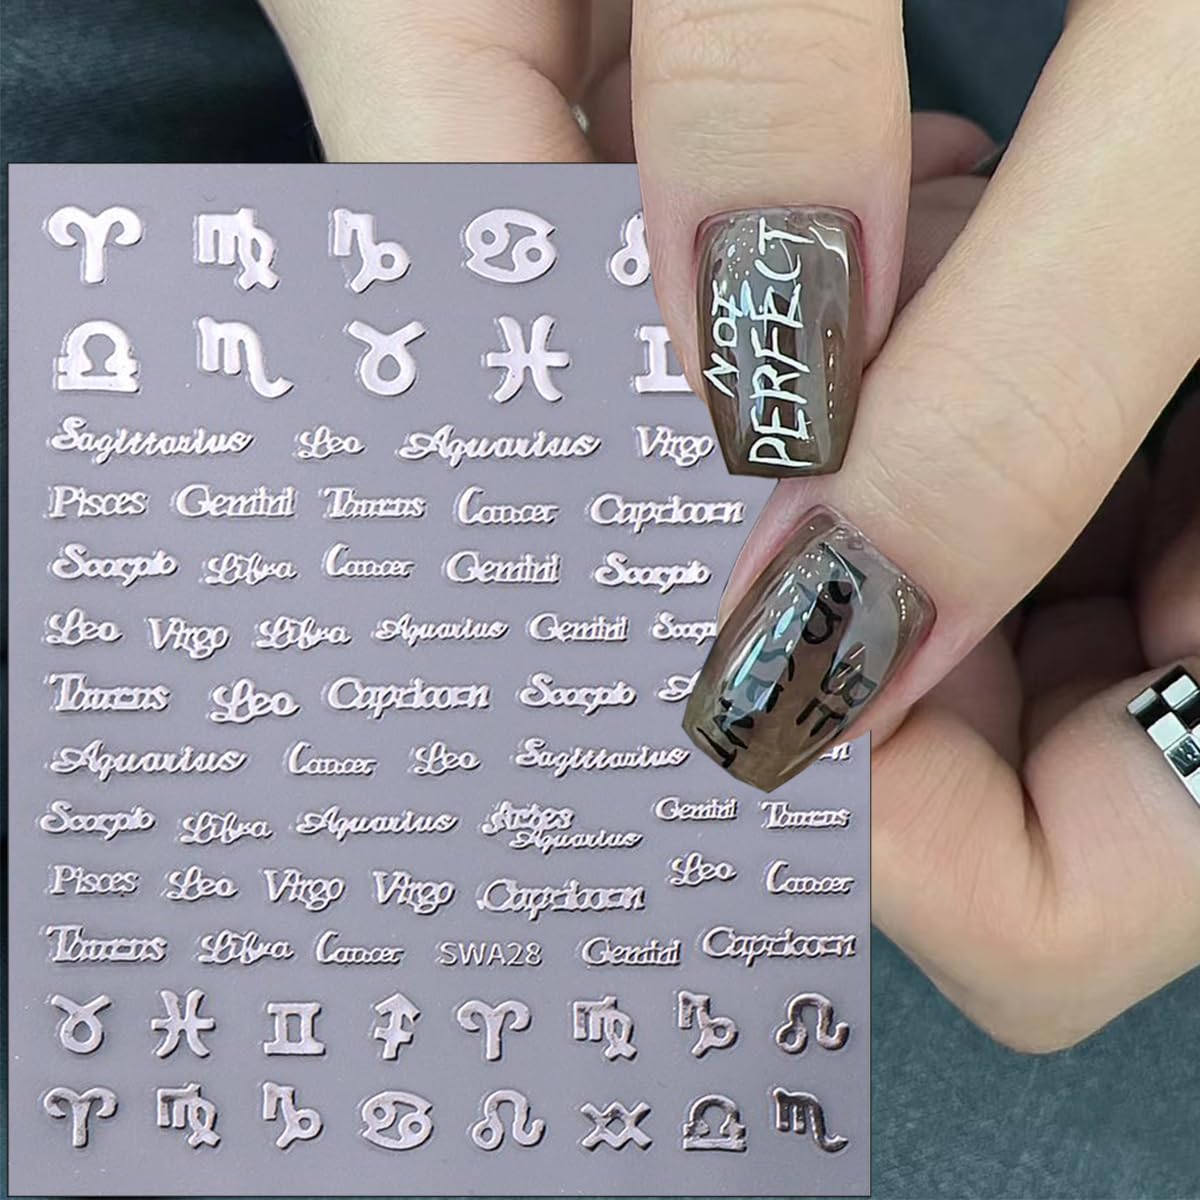 Sagittarius Leo Aquarius Virgo
Pisces Gemini Taurus Cancer Capricorn
Scorpio Libra Cancer Gemini Scorpio
Leo Virgo Libra Aquarius Gemini Scorp
Taurus Leo Capricorn Scorpio
Aquarius Cancer Leo Sagittarius
Scorpio Libra Aquarius Aries Gemini Taurus
Aquarius
Pisces Leo Virgo Virgo Capricorn Leo Cancer
Taurus Libra Cancer SWA28 Gemini Capricorn
NOT
PERFECT